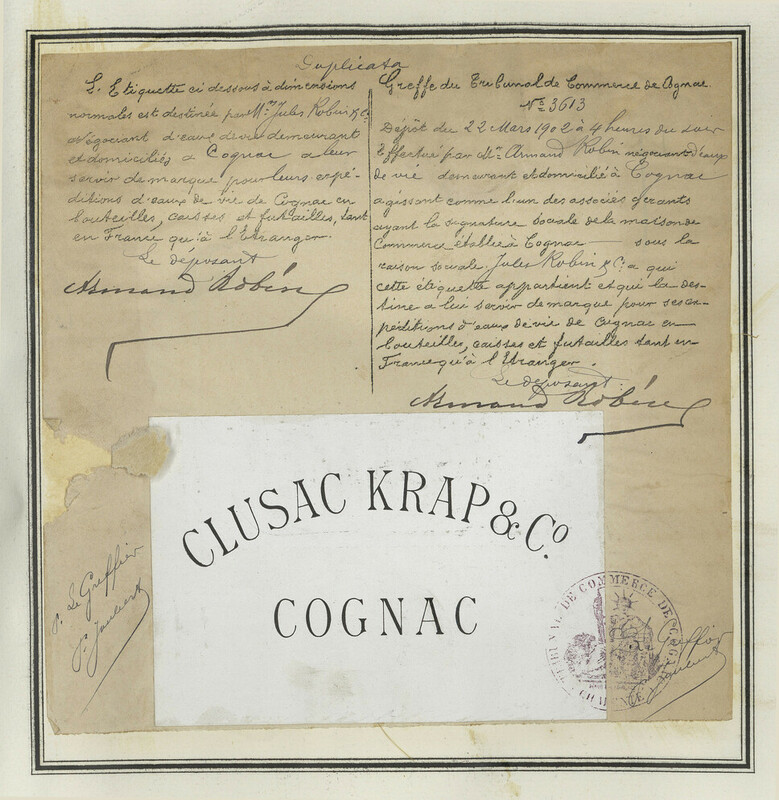 Duplicata
L'Etiquette ci dessous à dimensions
normales est destinée par Mrs Jules Robin & Cie
Négociant d'eaux de vie demeurant
et domiciliés à Cognac a leur
servir de marque pour leurs expé-
ditions d'eaux de vie de Cognac en
bouteilles, caisses et futailles, tant
en France qu'à l'Etranger.
Le déposant
Armand Robin
Greffe du Tribunal de Commerce de Cognac
No 3613
Dépôt du 22 Mars 1902 à 4 heures du soir
Effectué par Mr Armand Robin négociant d'eaux
de vie demeurant et domicilié à Cognac
agissant comme l'un des associés gérants
ayant la signature sociale de la maison de
Commerce établie à Cognac — sous la
raison sociale Jules Robin & Cie a qui
cette étiquette appartient et qui la des-
tine a lui servir de marque pour ses ex-
péditions d'eaux de vie de Cognac en
bouteilles, caisses et futailles tant en
France qu'à l'Etranger.
Le déposant
Armand Robin
CLUSAC KRAP & Co
COGNAC
p. Le Greffier
TRIBUNAL DE COMMERCE DE COGNAC
CHARENTE
Greffier